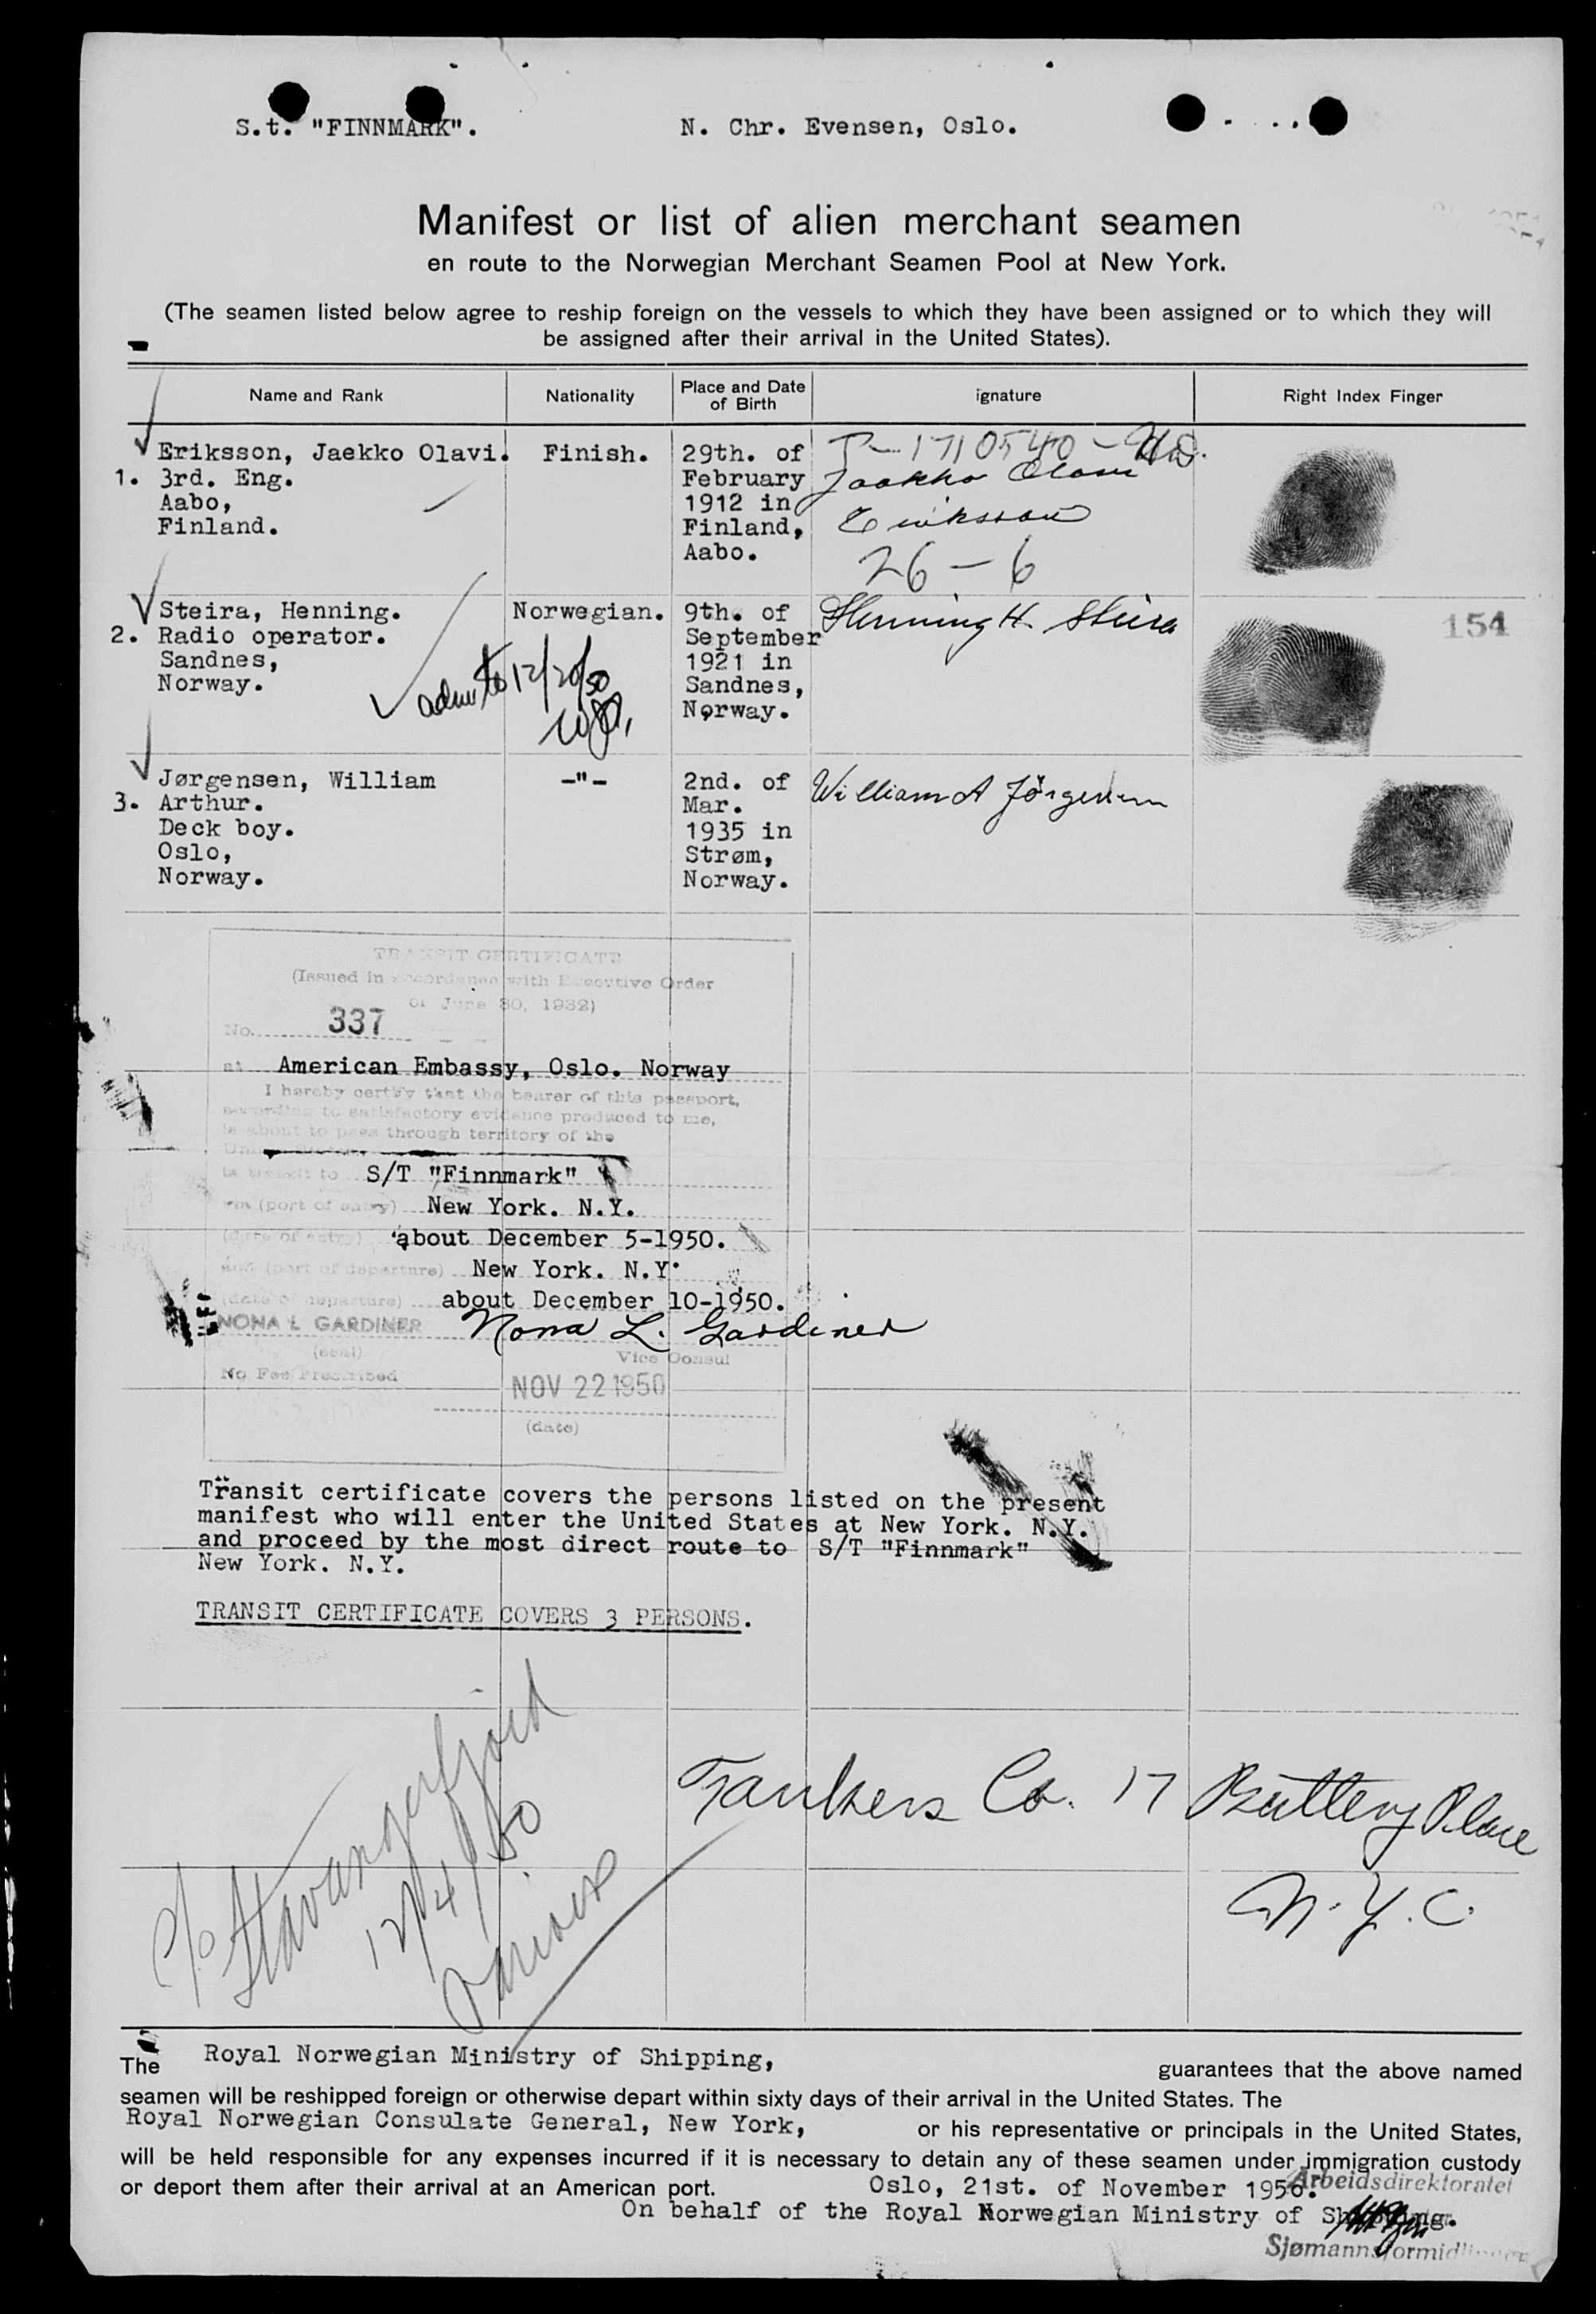 S.t. "FINNMARK". N. Chr. Evensen, Oslo.
Manifest or list of alien merchant seamen
en route to the Norwegian Merchant Seamen Pool at New York.
(The seamen listed below agree to reship foreign on the vessels to which they have been assigned or to which they will
be assigned after their arrival in the United States).
Name and Rank
Nationality
Place and Date
of Birth
ignature
Right Index Finger
1. Eriksson, Jaekko Olavi.
3rd. Eng.
Aabo,
Finland.
Finish.
29th. of
February
1912 in
Finland,
Aabo.
1710540
Jaakko Olavi
Eriksson
26-6
2. Steira, Henning.
Radio operator.
Sandnes,
Norway.
Norwegian.
9th. of
September
1921 in
Sandnes,
Norway.
Henning H. Steira
154
12/20/50
3. Jørgensen, William
Arthur.
Deck boy.
Oslo,
Norway.
-"-
2nd. of
Mar.
1935 in
Strøm,
Norway.
William A Jörgensen
TRANSIT CERTIFICATE
(Issued in accordance with Executive Order
of June 30, 1932)
No. 337
at American Embassy, Oslo. Norway
I hereby certify that the bearer of this passport,
according to satisfactory evidence produced to me,
is about to pass through territory of the
in transit to S/T "Finnmark"
via (port of entry) New York. N.Y.
(date of entry) about December 5-1950.
and (port of departure) New York. N.Y.
(date of departure) about December 10-1950.
NONA L GARDINER Nona L. Gardiner
(seal) Vice Consul
No Fee Prescribed
NOV 22 1950
(date)
Transit certificate covers the persons listed on the present
manifest who will enter the United States at New York. N.Y.
and proceed by the most direct route to S/T "Finnmark"
New York. N.Y.
TRANSIT CERTIFICATE COVERS 3 PERSONS.
Stavangerfjord
12/4/50
various
Tankers Co. 17 Battery Place
N.Y.C.
The Royal Norwegian Ministry of Shipping, guarantees that the above named
seamen will be reshipped foreign or otherwise depart within sixty days of their arrival in the United States. The
Royal Norwegian Consulate General, New York, or his representative or principals in the United States,
will be held responsible for any expenses incurred if it is necessary to detain any of these seamen under immigration custody
or deport them after their arrival at an American port. Oslo, 21st. of November 1950.
Arbeidsdirektoratet
On behalf of the Royal Norwegian Ministry of Shipping.
Sjømannsformidlingen